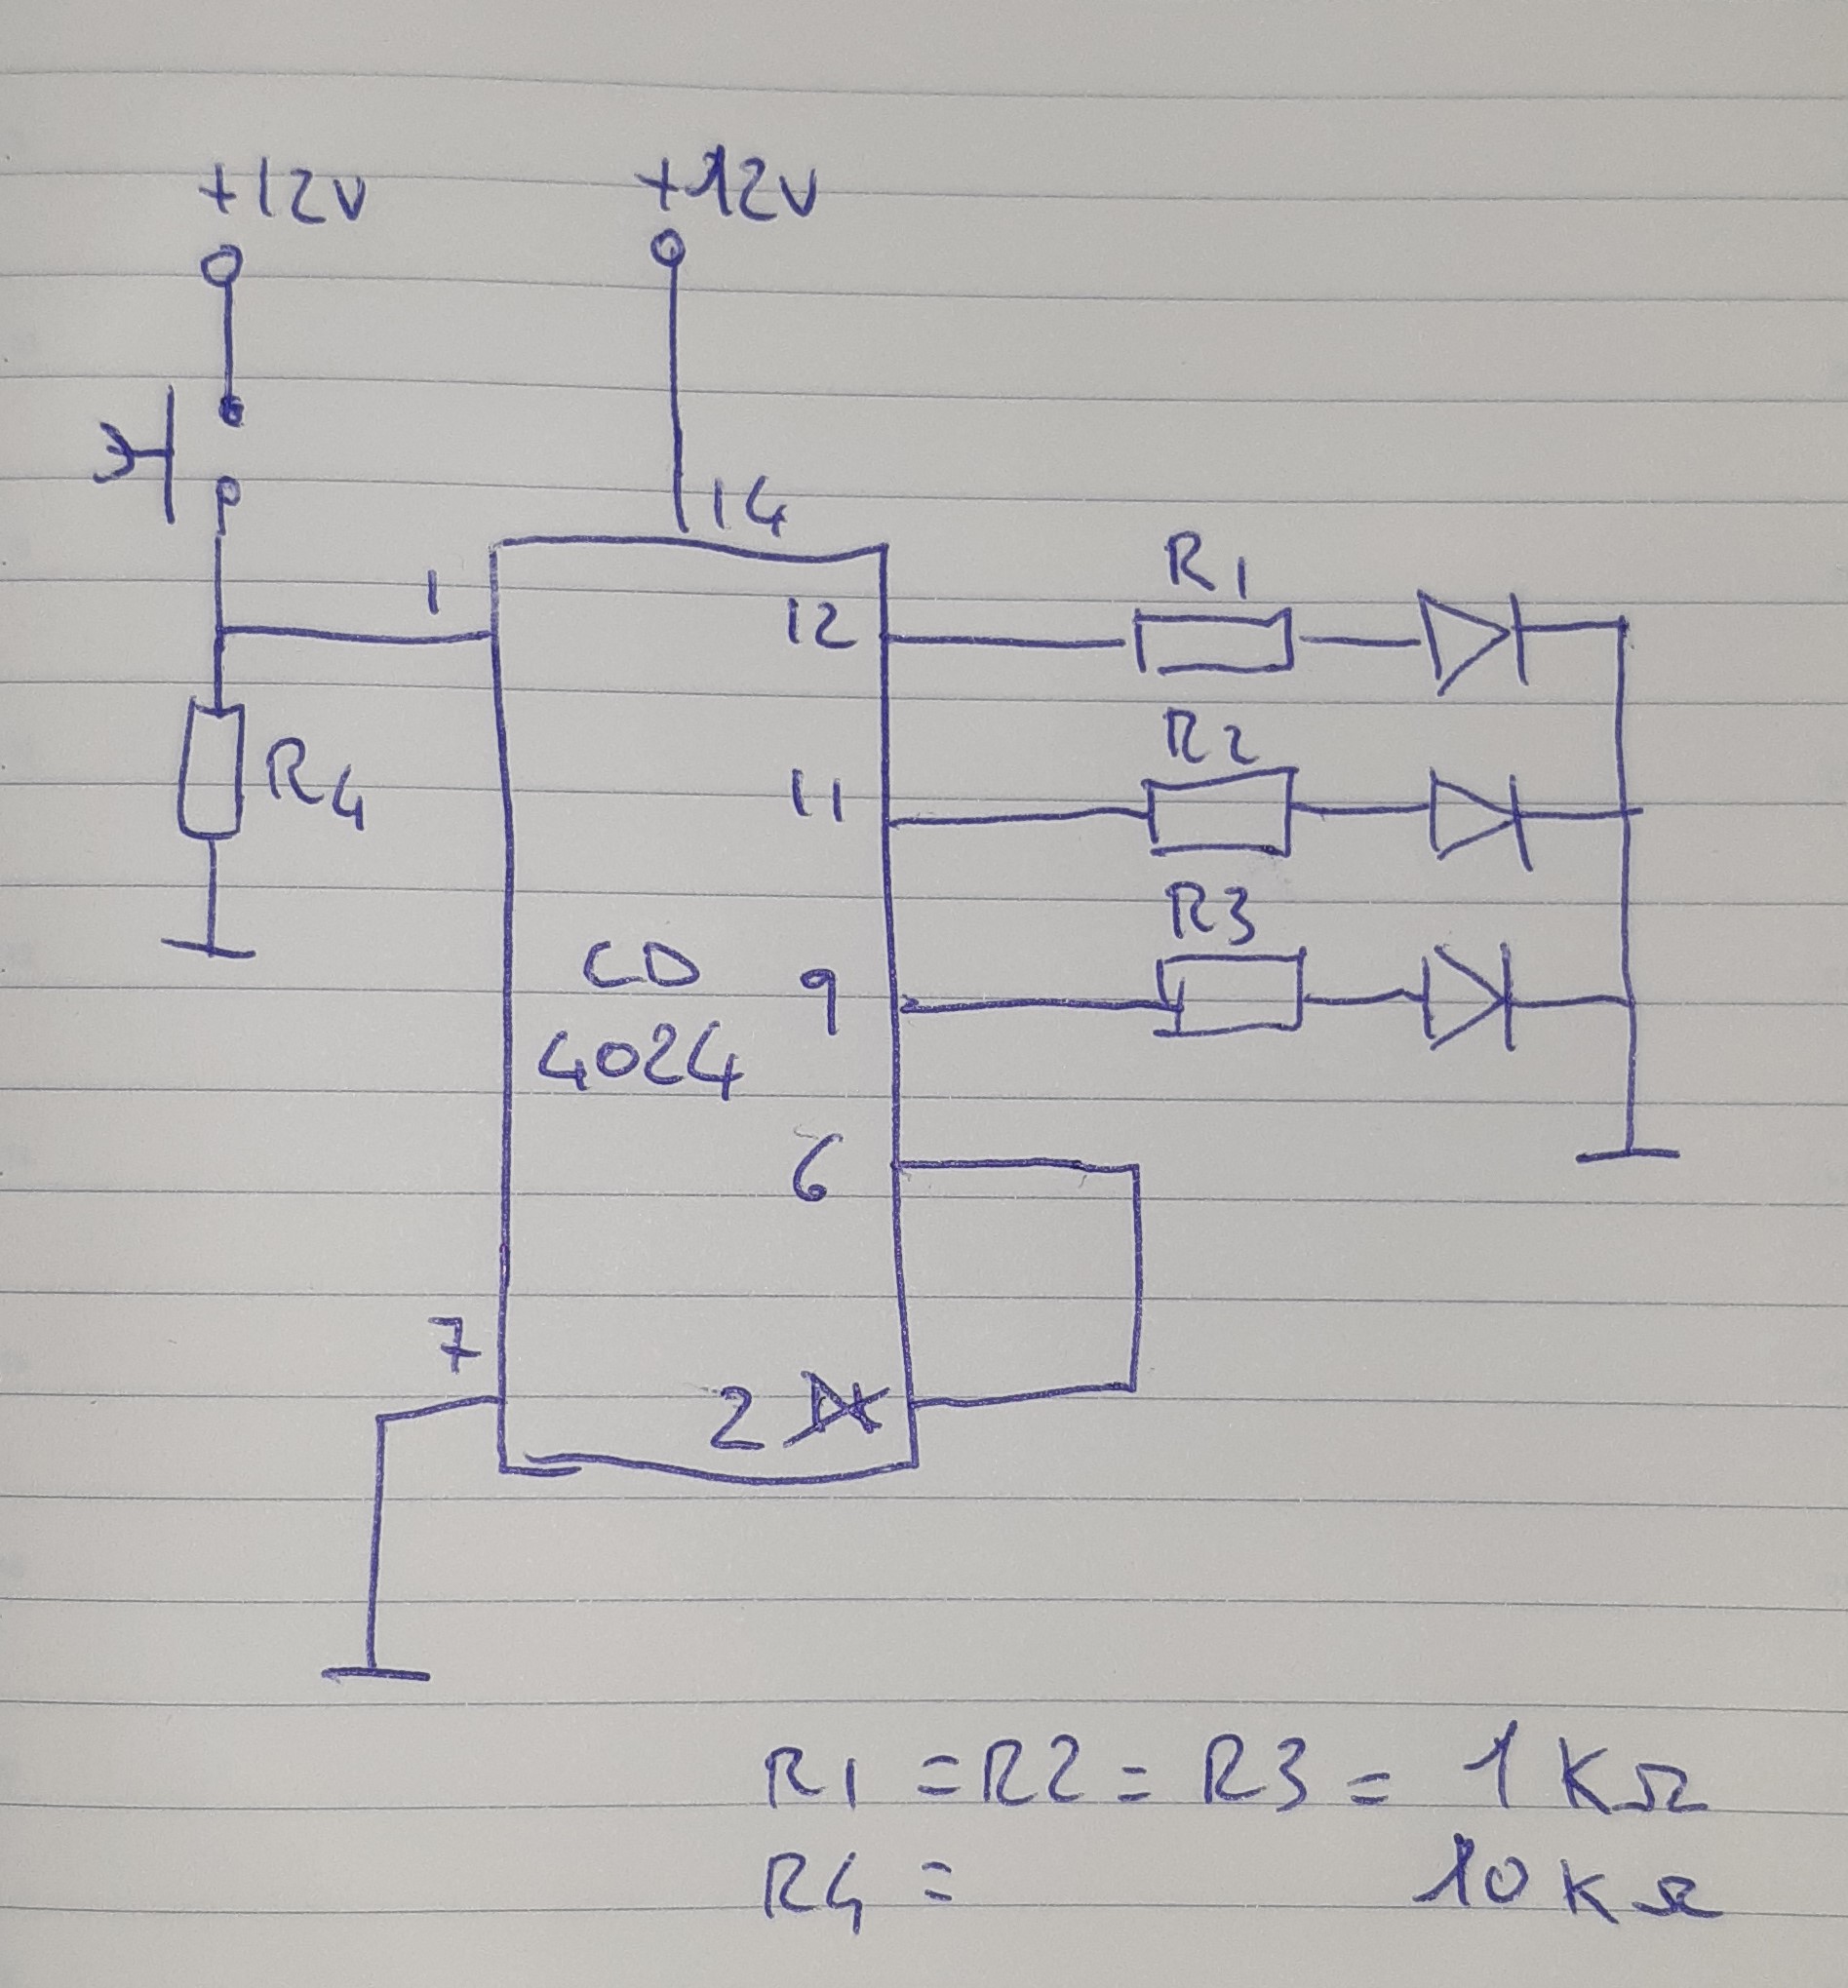 +12V +12V
14
1 12 R1
11 R2
R4
R3
CD 9
4024
6
7
2
R1 = R2 = R3 = 1 KΩ
R4 = 10 KΩ